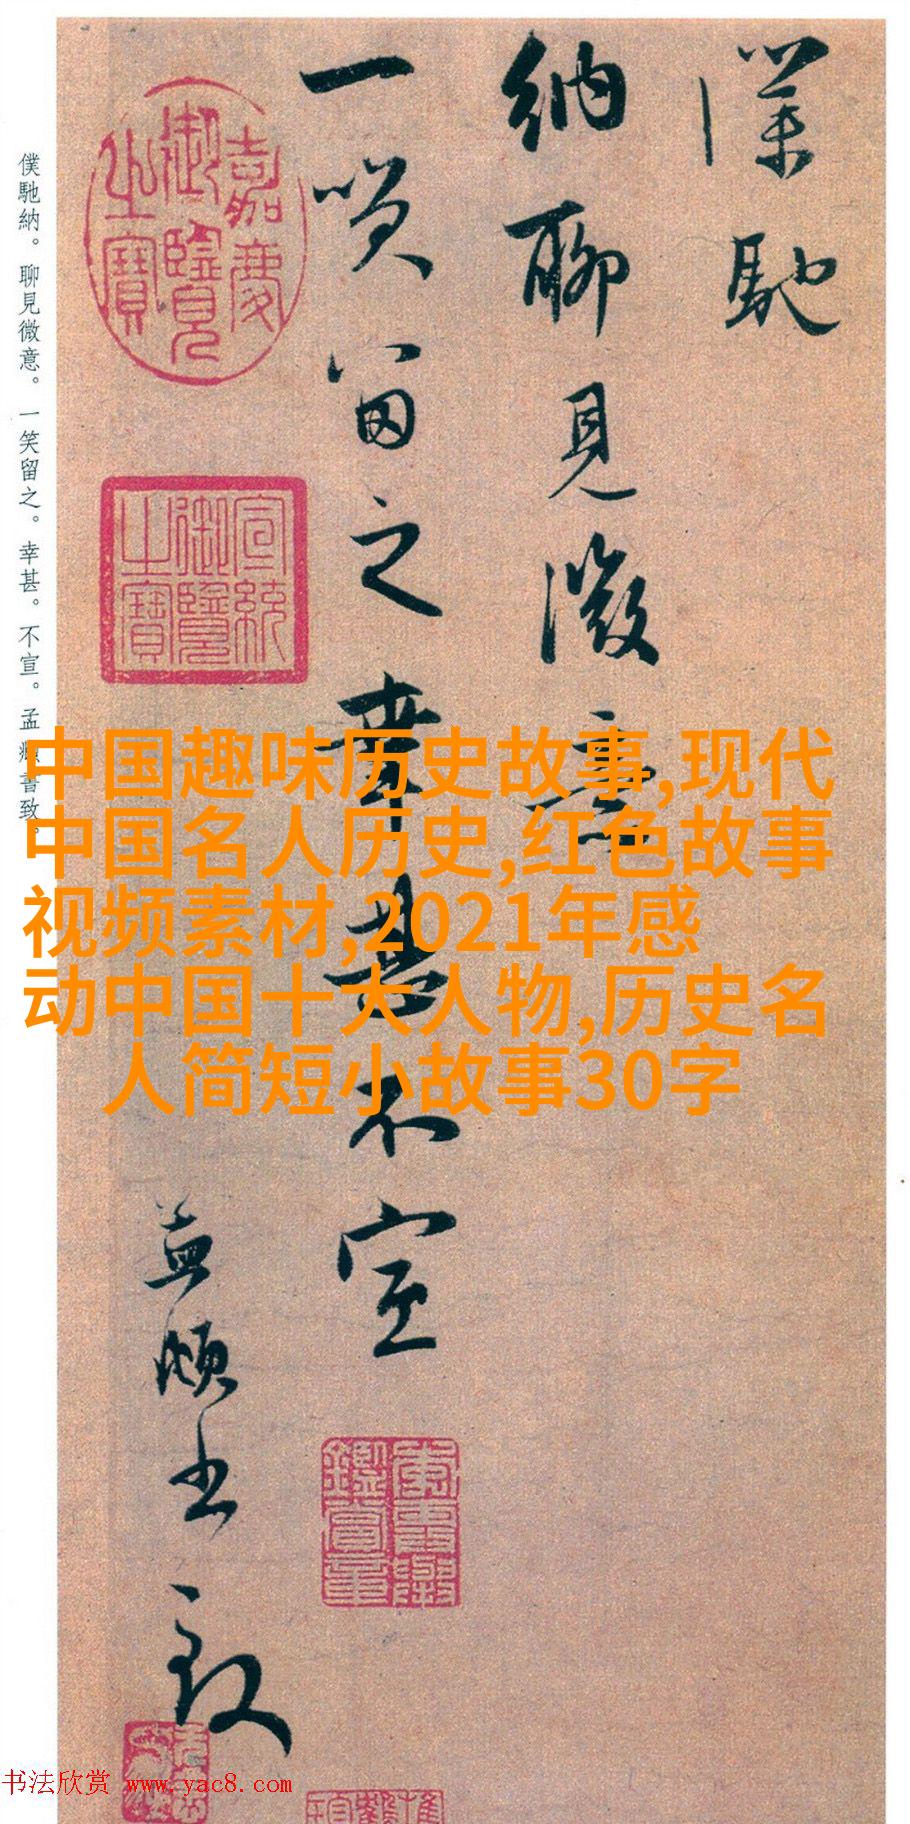 僕馳
納聊見微意
一笑留之幸甚不宣
孟頫書致
嘉慶御覽之寶
宣統御覽之寶
僕馳納。聊見微意。一笑留之。幸甚。不宣。孟頫書致。
中国趣味历史故事,现代
中国名人历史,红色故事
视频素材,2021年感
动中国十大人物,历史名
人简短小故事30字
书法欣赏 www.yac8.com